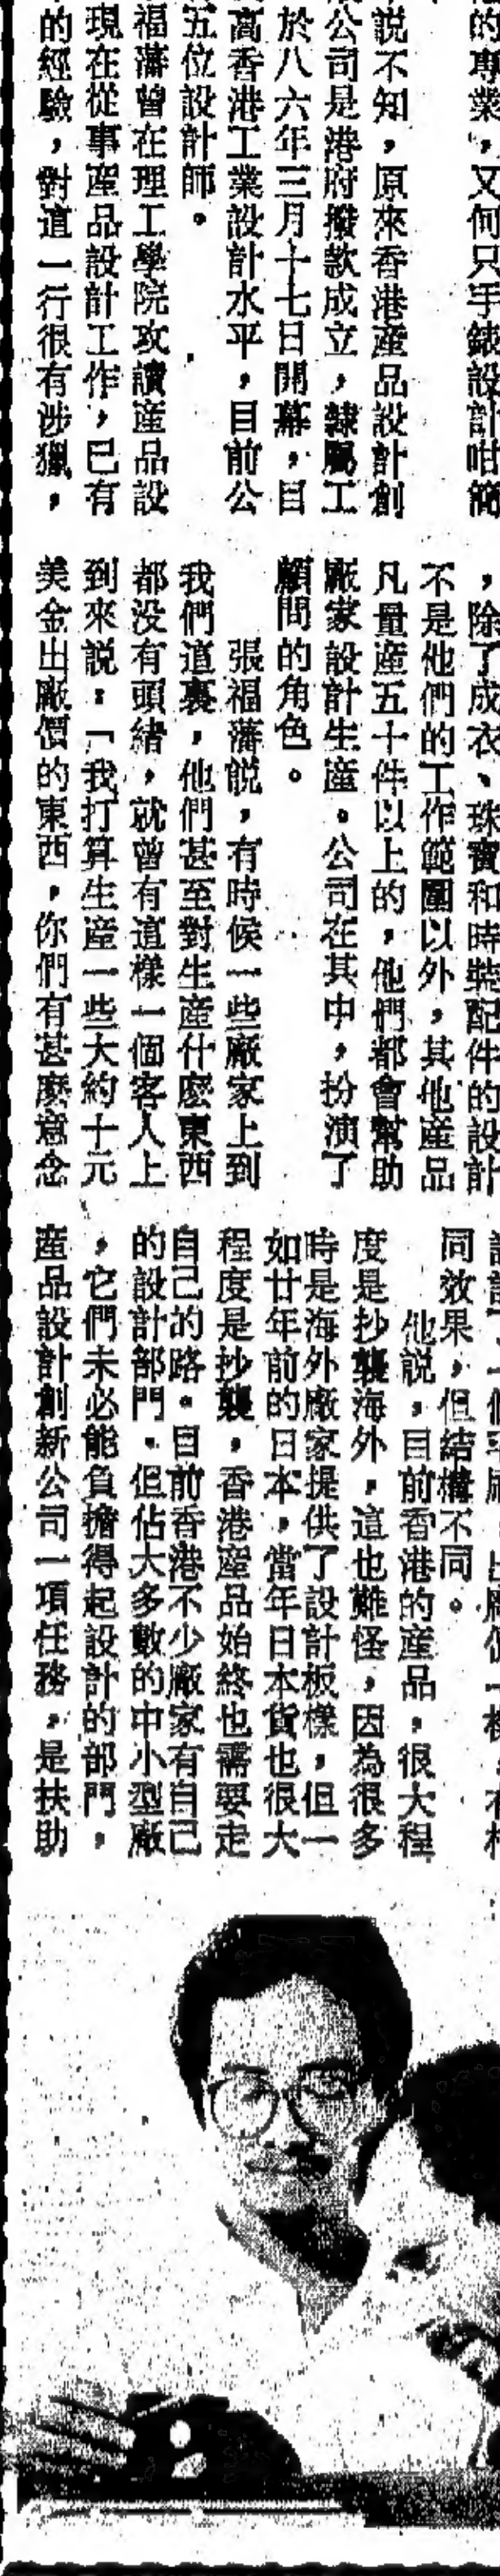 的專業，又何只手錶設計咁簡
說不知，原來香港產品設計創
公司是港府撥款成立，隸屬工
於八六年三月十七日開幕，目
高香港工業設計水平，目前公
五位設計師。
福藩曾在理工學院攻讀產品設
現在從事產品設計工作，已有
的經驗，對這一行很有涉獵，
，除了成衣、珠寶和時裝配件的設計
不是他們的工作範圍以外，其他產品
凡量產五十件以上的，他們都會幫助
廠家設計生產。公司在其中，扮演了
顧問的角色。
張福藩說，有時候一些廠家上到
我們這裏，他們甚至對生產什麼東西
都沒有頭緒，就曾有這樣一個客人上
到來說：「我打算生產一些大約十元
美金出廠價的東西，你們有甚麼意念
同效果，但結構不同。
他說，目前香港的產品，很大程
度是抄襲海外，這也難怪，因為很多
時是海外廠家提供了設計板樣，但一
如廿年前的日本，當年日本貨也很大
程度是抄襲，香港產品始終也需要走
自己的路。目前香港不少廠家有自己
的設計部門，但佔大多數的中小型廠
，它們未必能負擔得起設計的部門，
產品設計創新公司一項任務，是扶助